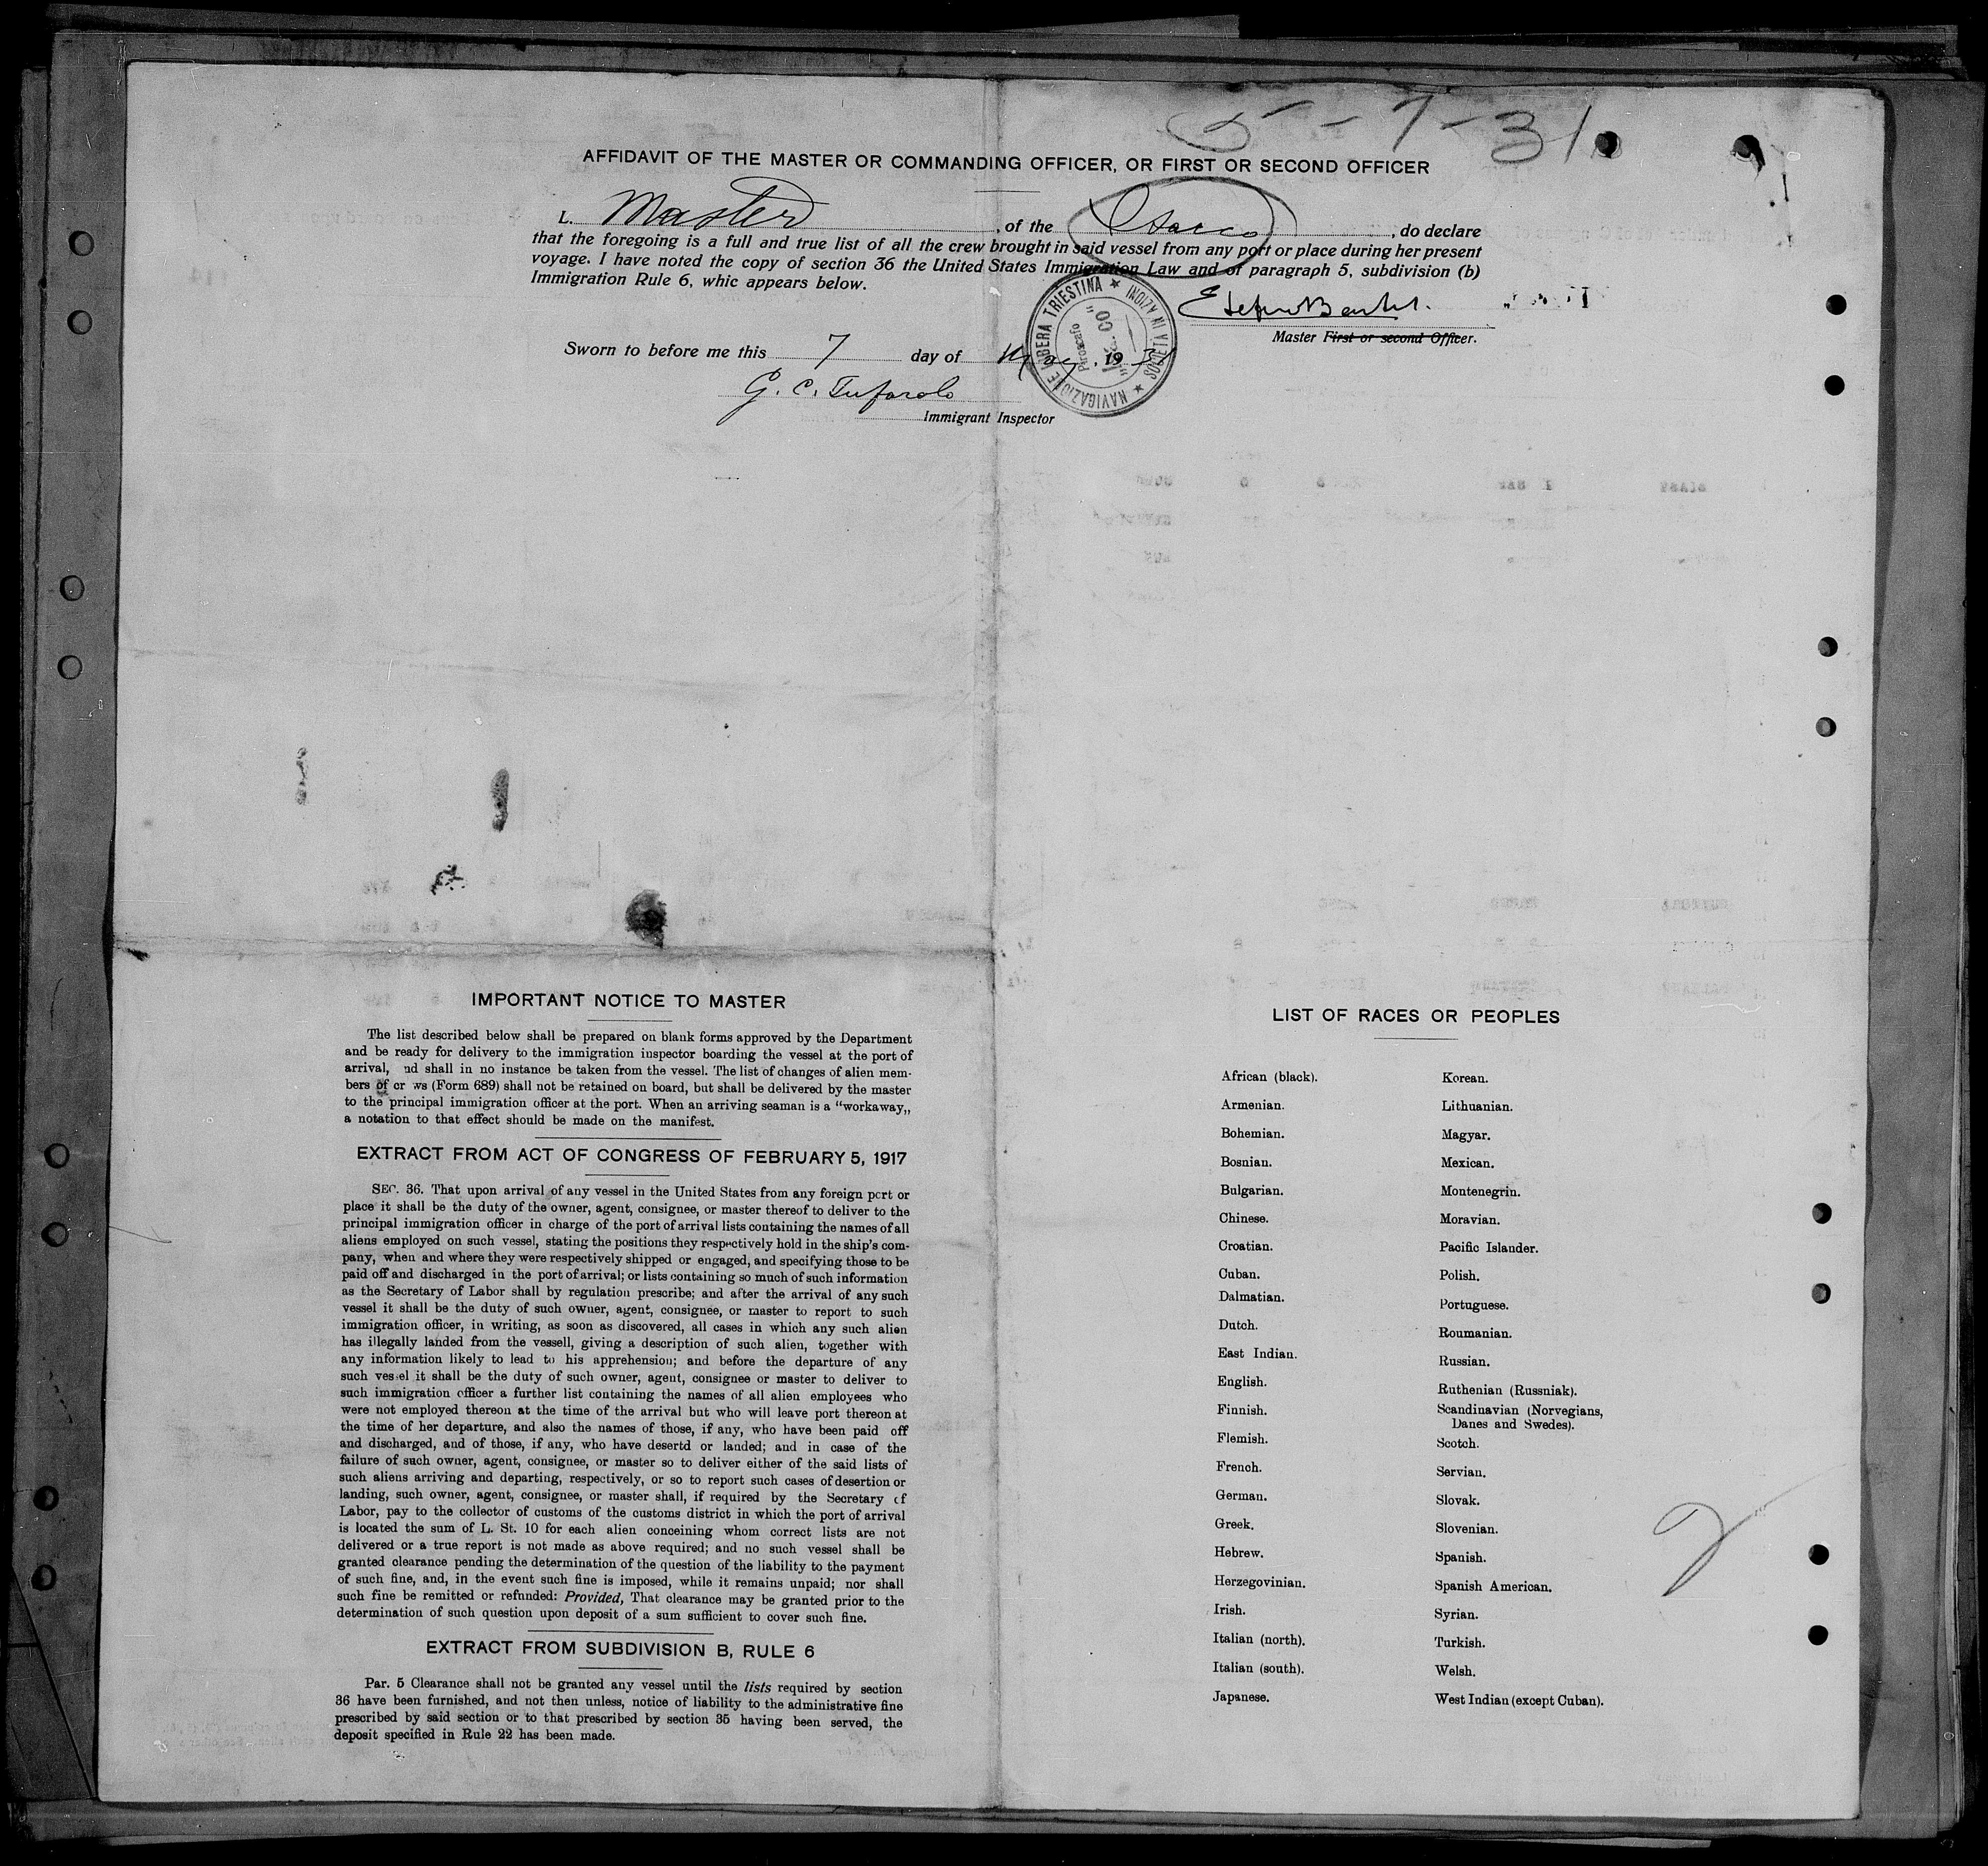 5-7-31
AFFIDAVIT OF THE MASTER OR COMMANDING OFFICER, OR FIRST OR SECOND OFFICER
I. Master, of the Isarco, do declare
that the foregoing is a full and true list of all the crew brought in said vessel from any port or place during her present
voyage. I have noted the copy of section 36 the United States Immigration Law and of paragraph 5, subdivision (b)
Immigration Rule 6, whic appears below.
NAVIGAZIONE LIBERA TRIESTINA ★ SOCIETA IN AZIONI ★
Piroscafo
Master First or second Officer.
Sworn to before me this 7 day of May, 1931
G. C. Tufarolo
Immigrant Inspector
IMPORTANT NOTICE TO MASTER
The list described below shall be prepared on blank forms approved by the Department
and be ready for delivery to the immigration inspector boarding the vessel at the port of
arrival, nd shall in no instance be taken from the vessel. The list of changes of alien mem-
bers of cr ws (Form 689) shall not be retained on board, but shall be delivered by the master
to the principal immigration officer at the port. When an arriving seaman is a “workaway„
a notation to that effect should be made on the manifest.
EXTRACT FROM ACT OF CONGRESS OF FEBRUARY 5, 1917
SEC. 36. That upon arrival of any vessel in the United States from any foreign port or
place it shall be the duty of the owner, agent, consignee, or master thereof to deliver to the
principal immigration officer in charge of the port of arrival lists containing the names of all
aliens employed on such vessel, stating the positions they respectively hold in the ship's com-
pany, when and where they were respectively shipped or engaged, and specifying those to be
paid off and discharged in the port of arrival; or lists containing so much of such information
as the Secretary of Labor shall by regulation prescribe; and after the arrival of any such
vessel it shall be the duty of such owner, agent, consignee, or master to report to such
immigration officer, in writing, as soon as discovered, all cases in which any such alien
has illegally landed from the vessell, giving a description of such alien, together with
any information likely to lead to his apprehension; and before the departure of any
such vessel it shall be the duty of such owner, agent, consignee or master to deliver to
such immigration officer a further list containing the names of all alien employees who
were not employed thereon at the time of the arrival but who will leave port thereon at
the time of her departure, and also the names of those, if any, who have been paid off
and discharged, and of those, if any, who have desertd or landed; and in case of the
failure of such owner, agent, consignee, or master so to deliver either of the said lists of
such aliens arriving and departing, respectively, or so to report such cases of desertion or
landing, such owner, agent, consignee, or master shall, if required by the Secretary of
Labor, pay to the collector of customs of the customs district in which the port of arrival
is located the sum of L. St. 10 for each alien conceining whom correct lists are not
delivered or a true report is not made as above required; and no such vessel shall be
granted clearance pending the determination of the question of the liability to the payment
of such fine, and, in the event such fine is imposed, while it remains unpaid; nor shall
such fine be remitted or refunded: Provided, That clearance may be granted prior to the
determination of such question upon deposit of a sum sufficient to cover such fine.
EXTRACT FROM SUBDIVISION B, RULE 6
Par. 5 Clearance shall not be granted any vessel until the lists required by section
36 have been furnished, and not then unless, notice of liability to the administrative fine
prescribed by said section or to that prescribed by section 35 having been served, the
deposit specified in Rule 22 has been made.
LIST OF RACES OR PEOPLES
African (black).
Armenian.
Bohemian.
Bosnian.
Bulgarian.
Chinese.
Croatian.
Cuban.
Dalmatian.
Dutch.
East Indian.
English.
Finnish.
Flemish.
French.
German.
Greek.
Hebrew.
Herzegovinian.
Irish.
Italian (north).
Italian (south).
Japanese.
Korean.
Lithuanian.
Magyar.
Mexican.
Montenegrin.
Moravian.
Pacific Islander.
Polish.
Portuguese.
Roumanian.
Russian.
Ruthenian (Russniak).
Scandinavian (Norvegians,
Danes and Swedes).
Scotch.
Servian.
Slovak.
Slovenian.
Spanish.
Spanish American.
Syrian.
Turkish.
Welsh.
West Indian (except Cuban).
2